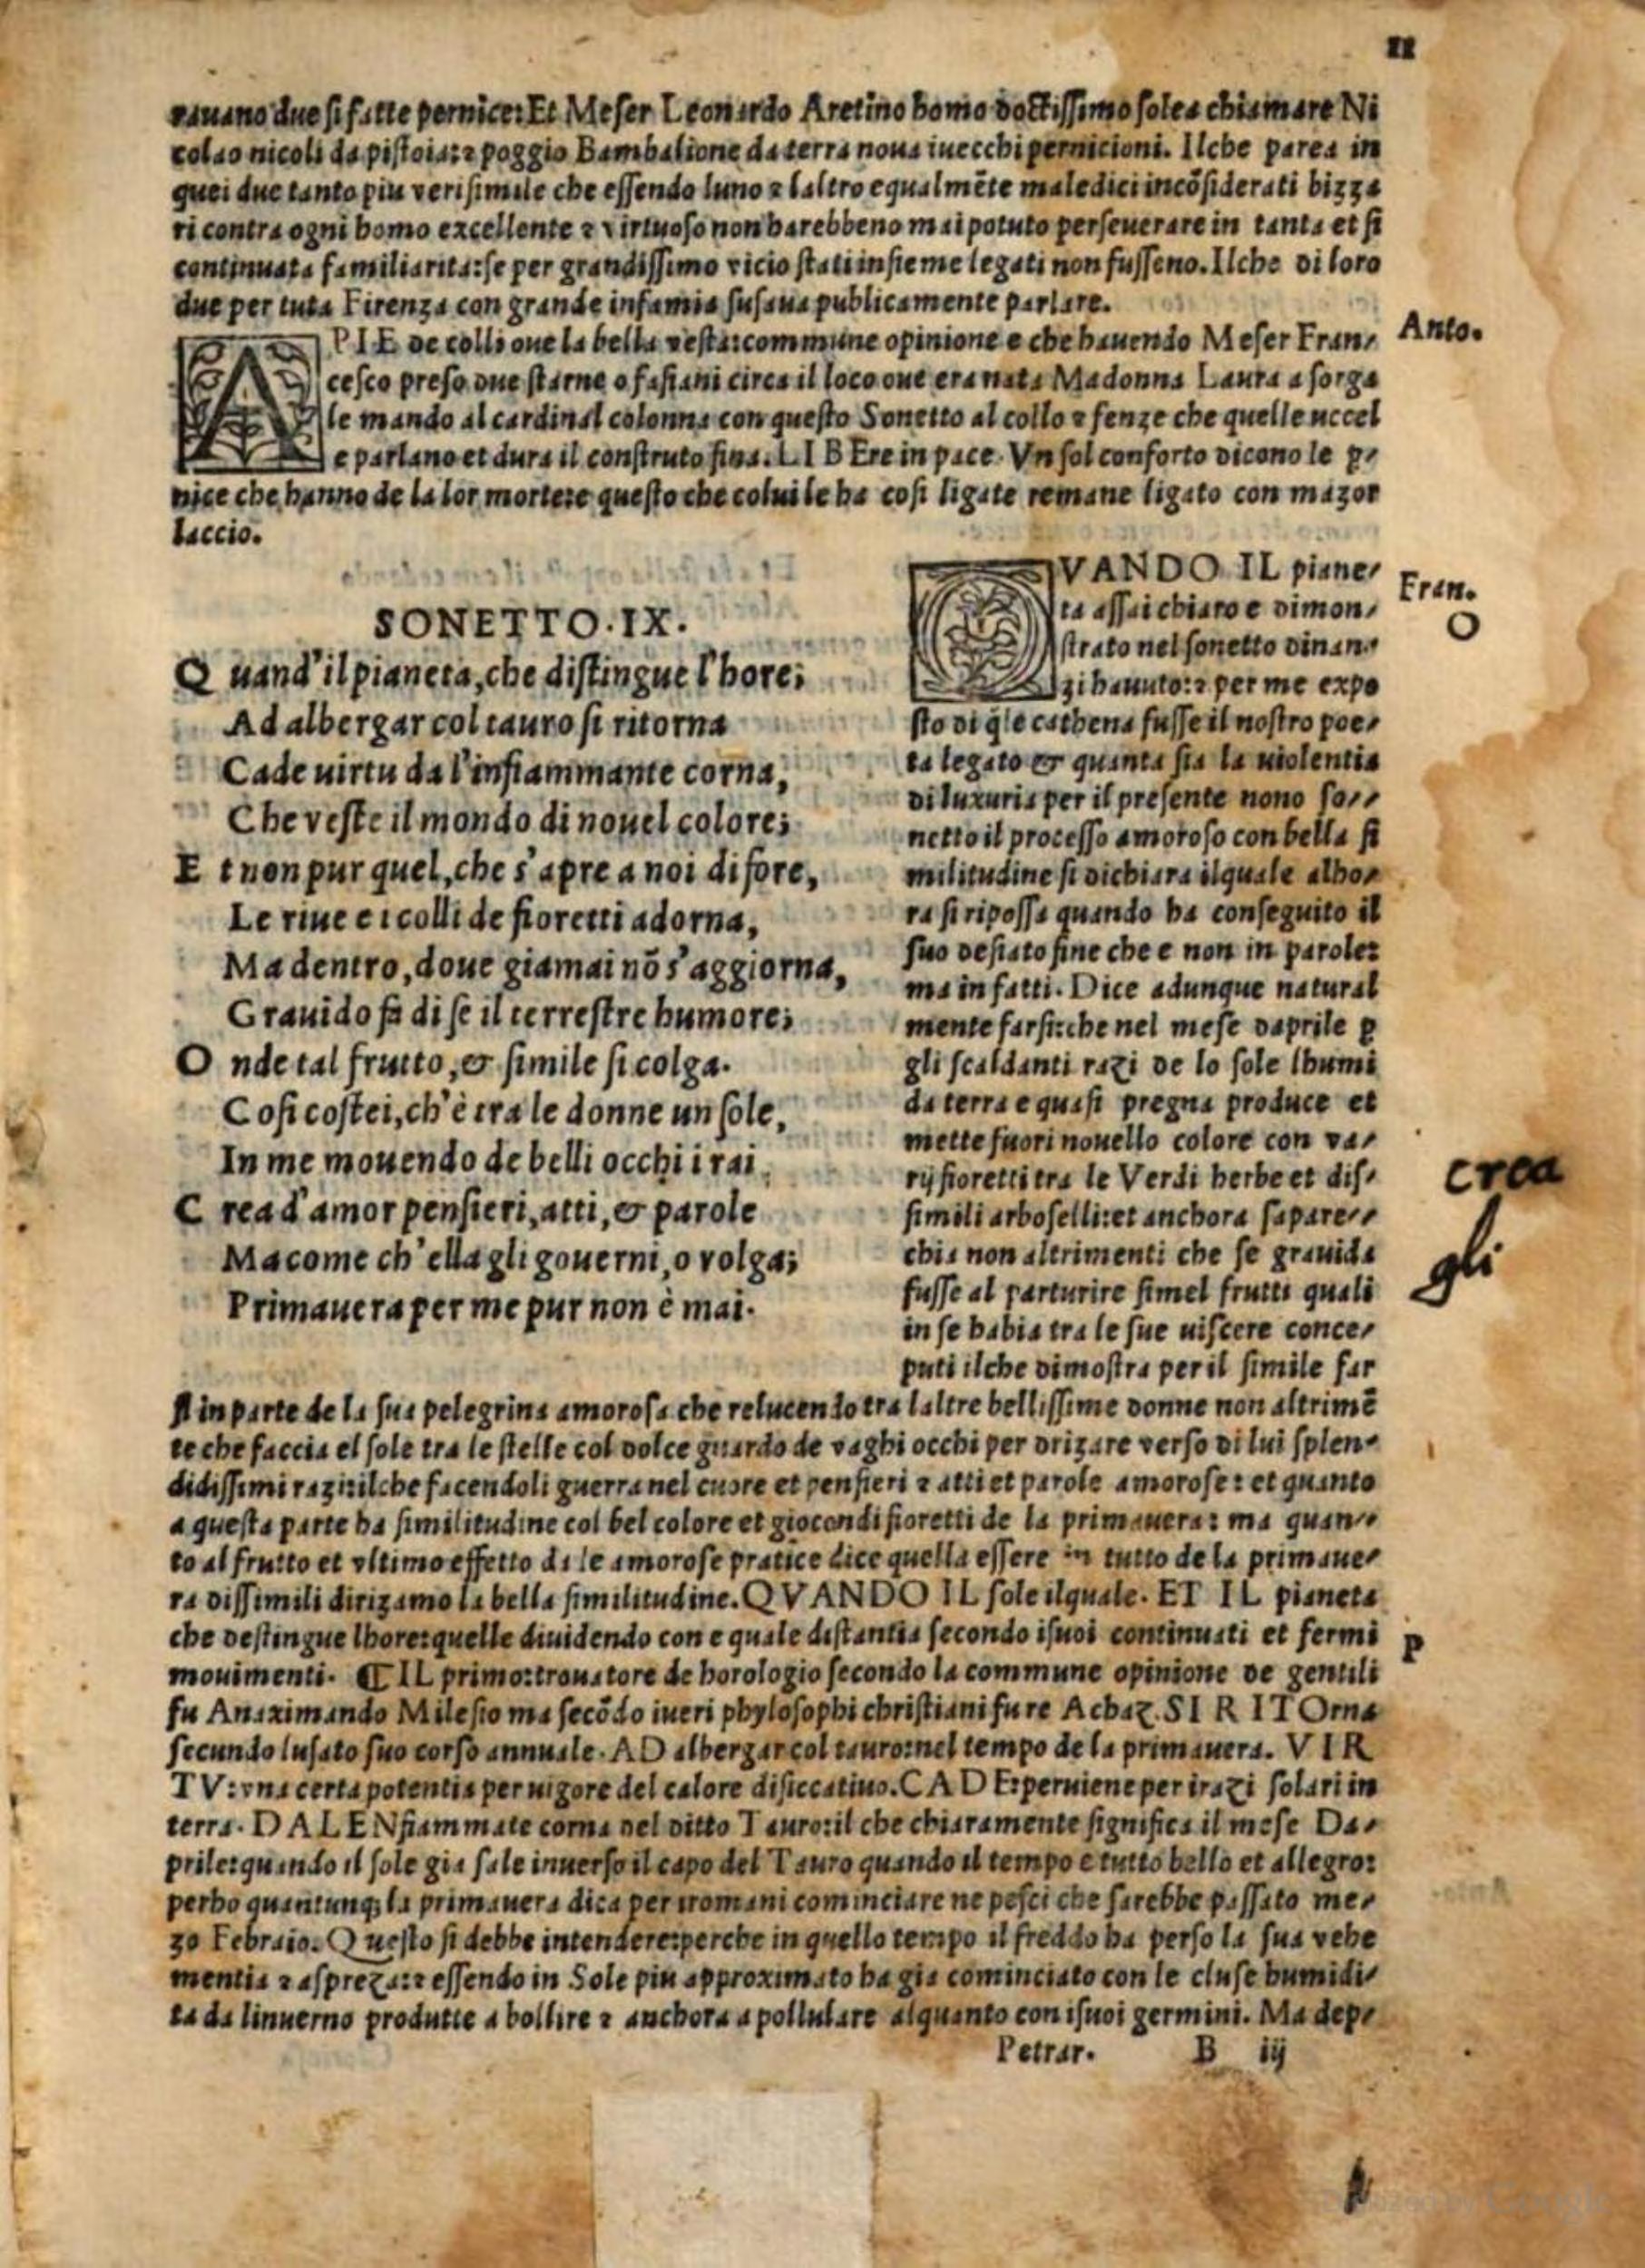 11
rauano due si fatte pernice: Et Meser Leonardo Aretino homo doctissimo solea chiamare Ni
colao nicoli da pistoia: ⁊ poggio Bambalione da terra noua iuecchi pernicioni. Ilche parea in
quei due tanto piu verisimile che essendo luno ⁊ laltro equalmēte maledici incōsiderati bizza
ri contra ogni homo excellente ⁊ virtuoso non harebbeno mai potuto perseuerare in tanta et si
continuata familiarita: se per grandissimo vicio stati insieme legati non fusseno. Ilche di loro
due per tuta Firenza con grande infamia susaua publicamente parlare.
Anto.
A PIE de colli oue la bella vesta: commune opinione e che hauendo Meser Fran/
cesco preso due starne o fasiani circa il loco oue era nata Madonna Laura a sorga
le mando al cardinal colonna con questo Sonetto al collo ⁊ fenze che quelle uccel
e parlano et dura il construto fina. LIBEre in pace. Vn sol conforto dicono le ꝑ/
nice che hanno de la lor morte: e questo che colui le ha cosi ligate remane ligato con mazor
laccio.
SONETTO. IX.
Q uand' il pianeta, che distingue l'hore;
Ad albergar col tauro si ritorna
Cade uirtu da l'infiammante corna,
Che veste il mondo di nouel colore;
E t non pur quel, che s'apre a noi di fore,
Le riue e i colli de fioretti adorna,
Ma dentro, doue giamai nō s'aggiorna,
Grauido fa di se il terrestre humore;
O nde tal frutto, & simile si colga.
Cosi costei, ch'è tra le donne un sole,
In me mouendo de belli occhi i rai
C rea d'amor pensieri, atti, & parole
Ma come ch'ella gli gouerni, o volga;
Primauera per me pur non è mai.
Fran.
O
QVANDO IL piane/
ta assai chiaro e dimon/
strato nel sonetto dinan/
zi hauuto: ⁊ per me expo
sto di q̄le cathena fusse il nostro poe/
ta legato & quanta sia la uiolentia
di luxuria per il presente nono so//
netto il processo amoroso con bella si
militudine si dichiara ilquale alho/
ra si ripossa quando ha conseguito il
suo desiato fine che e non in parole:
ma in fatti. Dice adunque natural
mente farsi: che nel mese daprile ꝑ
gli scaldanti razi de lo sole lhumi
da terra e quasi pregna produce et
mette fuori nouello colore con va/
rij fioretti tra le Verdi herbe et dis/
simili arboselli: et anchora sapare//
chia non altrimenti che se grauida
fusse al parturire simel frutti quali
in se habia tra le sue uiscere conce/
puti ilche dimostra per il simile far
crea
gli
si in parte de la sua pelegrina amorosa che relucendo tra laltre bellissime donne non altrimē
te che faccia el sole tra le stelle col dolce guardo de vaghi occhi per drizare verso di lui splen/
didissimi razi: ilche facendoli guerra nel cuore et pensieri ⁊ atti et parole amorose: et quanto
a questa parte ha similitudine col bel colore et giocondi fioretti de la primauera: ma quan//
to al frutto et vltimo effetto da le amorose pratice dice quella essere in tutto de la primaue/
ra dissimili dirizamo la bella similitudine. QVANDO IL sole ilquale. ET IL pianeta
che destingue lhore: quelle diuidendo con e quale distantia secondo isuoi continuati et fermi
P
mouimenti. ¶ IL primo: trouatore de horologio secondo la commune opinione de gentili
fu Anaximando Milesio ma secōdo iueri phylosophi christiani fu re Achaz. SI RITOrna
secundo lusato suo corso annuale. AD albergar col tauro: nel tempo de la primauera. VIR
TV: vna certa potentia per uigore del calore disiccatiuo. CADE: peruiene per irazi solari in
terra. DA LENfiammate corna del ditto Tauro: il che chiaramente significa il mese Da/
prile: quando il sole gia sale inuerso il capo del Tauro quando il tempo e tutto bello et allegro:
perho quantunq; la primauera dica per iromani cominciare ne pesci che sarebbe passato me/
zo Febraio. Questo si debbe intendere: perche in quello tempo il freddo ha perso la sua vehe
mentia ⁊ asprezza: ⁊ essendo in Sole piu approximato ha gia cominciato con le cluse humidi/
ta da linuerno produtte a bollire ⁊ anchora a pollulare alquanto con isuoi germini. Ma dep/
Petrar. B iij